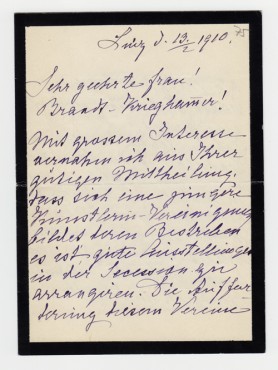 Linz d. 13/2 1910.
75
Sehr geehrte Frau!
Brandt-Krieghammer!
Mit grossem Interesse
vernahm ich aus Ihrer
gütigen Mittheilung,
dass sich eine jüngere
Künstlerin-Vereinigung
bildet deren Bestreben
es ist gute Ausstellungen
in der Secession zu
arrangiren. Die Auffor
derung diesem Vereine